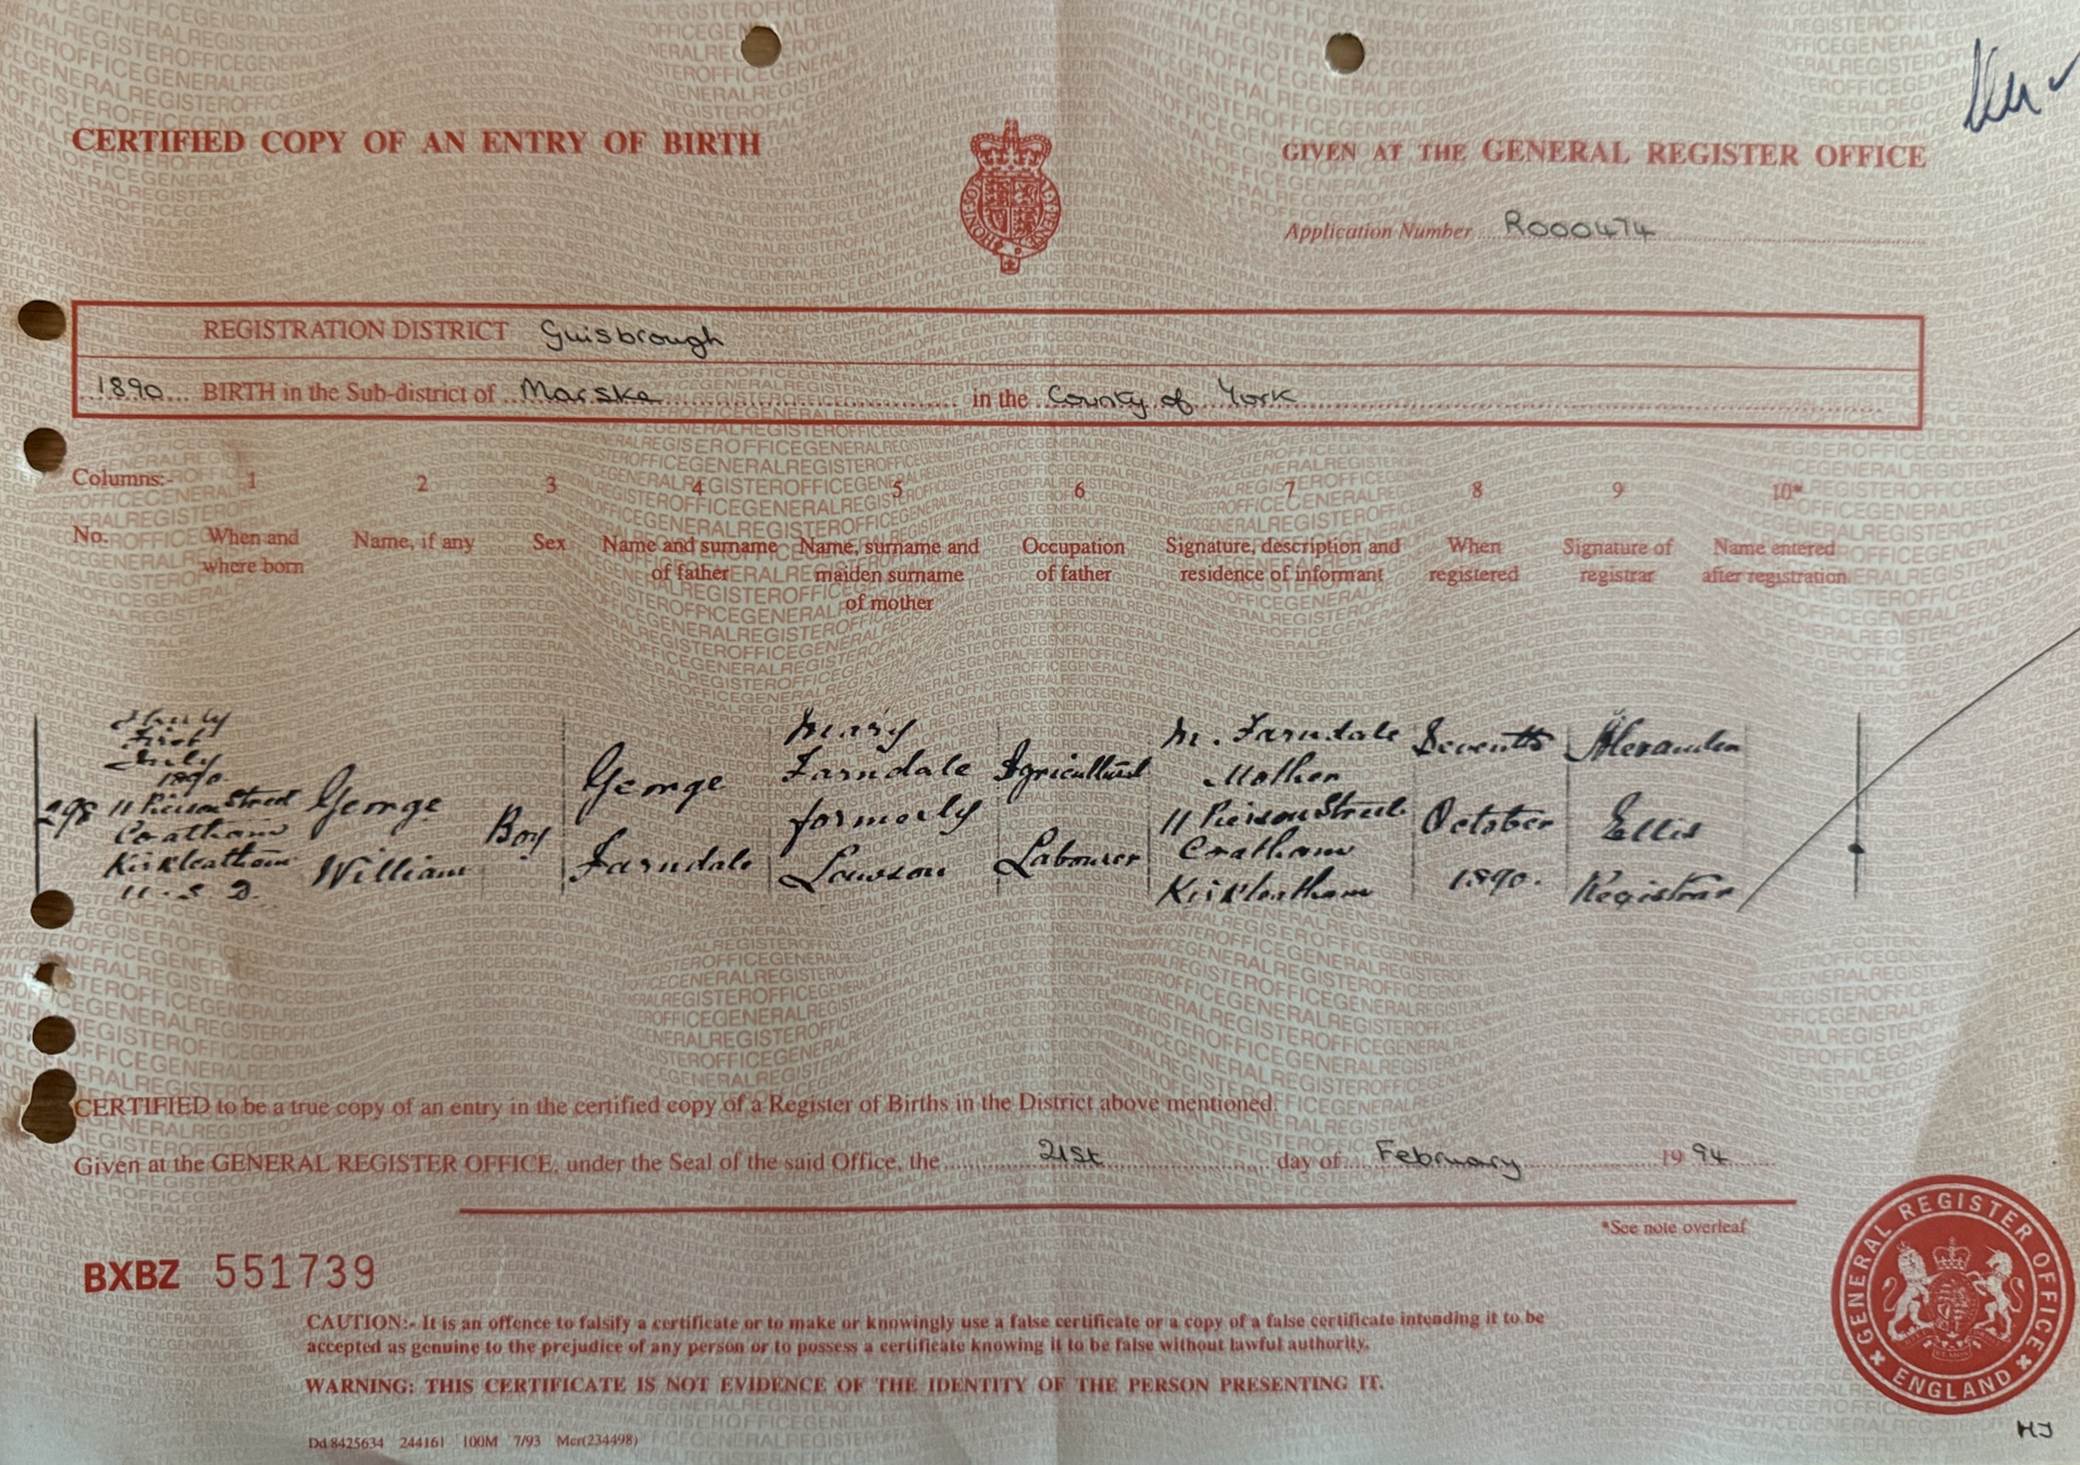 CERTIFIED COPY OF AN ENTRY OF BIRTH
GIVEN AT THE GENERAL REGISTER OFFICE
Application Number R000474
REGISTRATION DISTRICT Guisbrough
1890 BIRTH in the Sub-district of Marske in the County of York
Columns:- 1 2 3 4 5 6 7 8 9 10*
No.
When and
where born
Name, if any
Sex
Name and surname
of father
Name, surname and
maiden surname
of mother
Occupation
of father
Signature, description and
residence of informant
When
registered
Signature of
registrar
Name entered
after registration
298
Thirty
First
July
1890.
11 Pierson Street
Coatham
Kirkleatham
U. S. D.
George
William
Boy
George
Farndale
Mary
Farndale
formerly
Lawson
Agricultural
Labourer
M. Farndale
Mother
11 Pierson Street
Coatham
Kirkleatham
Seventh
October
1890.
Alexander
Ellis
Registrar
CERTIFIED to be a true copy of an entry in the certified copy of a Register of Births in the District above mentioned.
Given at the GENERAL REGISTER OFFICE, under the Seal of the said Office, the 21st day of February 1994
*See note overleaf
BXBZ 551739
CAUTION:- It is an offence to falsify a certificate or to make or knowingly use a false certificate or a copy of a false certificate intending it to be
accepted as genuine to the prejudice of any person or to possess a certificate knowing it to be false without lawful authority.
WARNING: THIS CERTIFICATE IS NOT EVIDENCE OF THE IDENTITY OF THE PERSON PRESENTING IT.
GENERAL REGISTER OFFICE
ENGLAND
Dd 8425634 244161 100M 7/93 Mcr(234498)
HJ